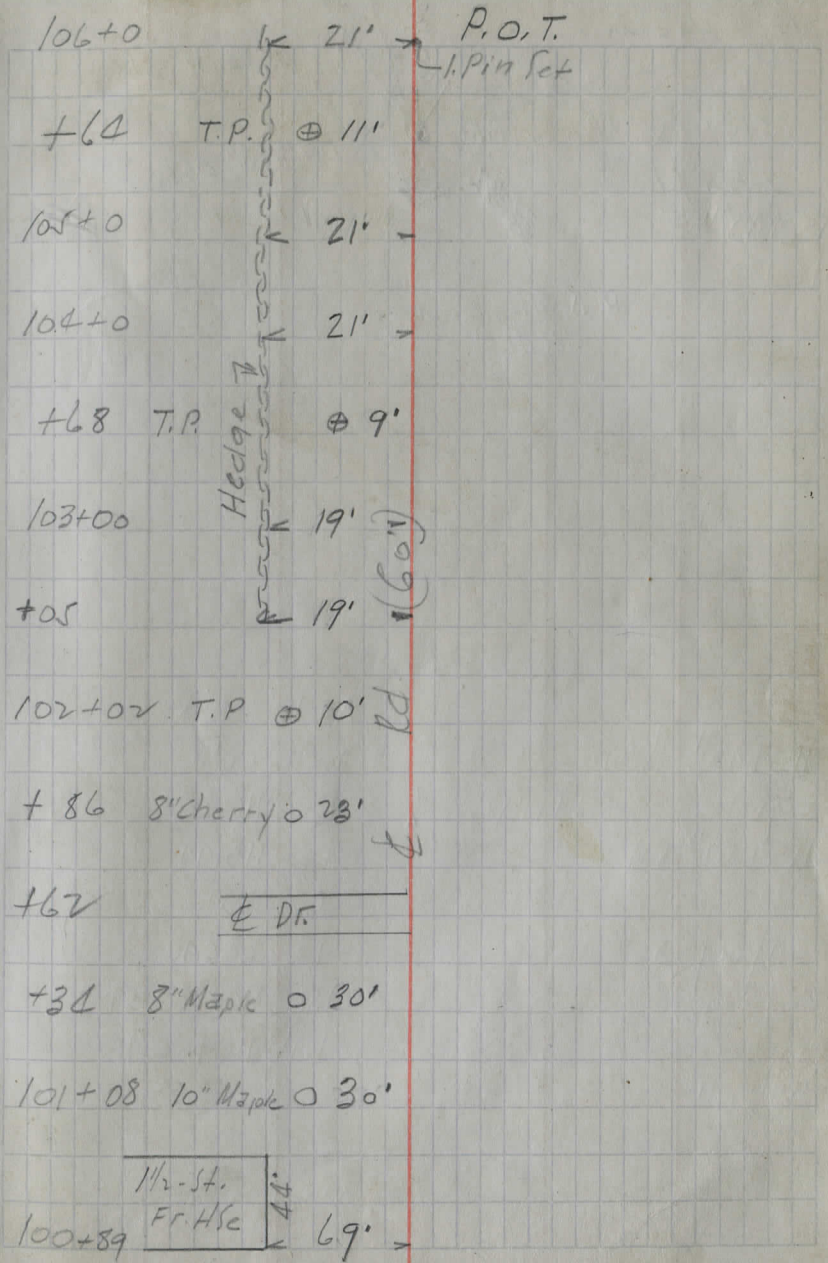 106+0 21' P.O.T.
I.Pin Set
+64 T.P. ⊕ 11'
105+0 21'
104+0 21'
Hedge
+68 T.P. ⊕ 9'
103+00 19'
(60')
+05 19'
102+02 T.P ⊕ 10'
℄ Rd
+86 8"Cherry o 23'
+62 ℄ Dr.
+34 8"Maple o 30'
101+08 10"Maple o 30'
1½-St.
Fr. HSe 44'
100+89 69'